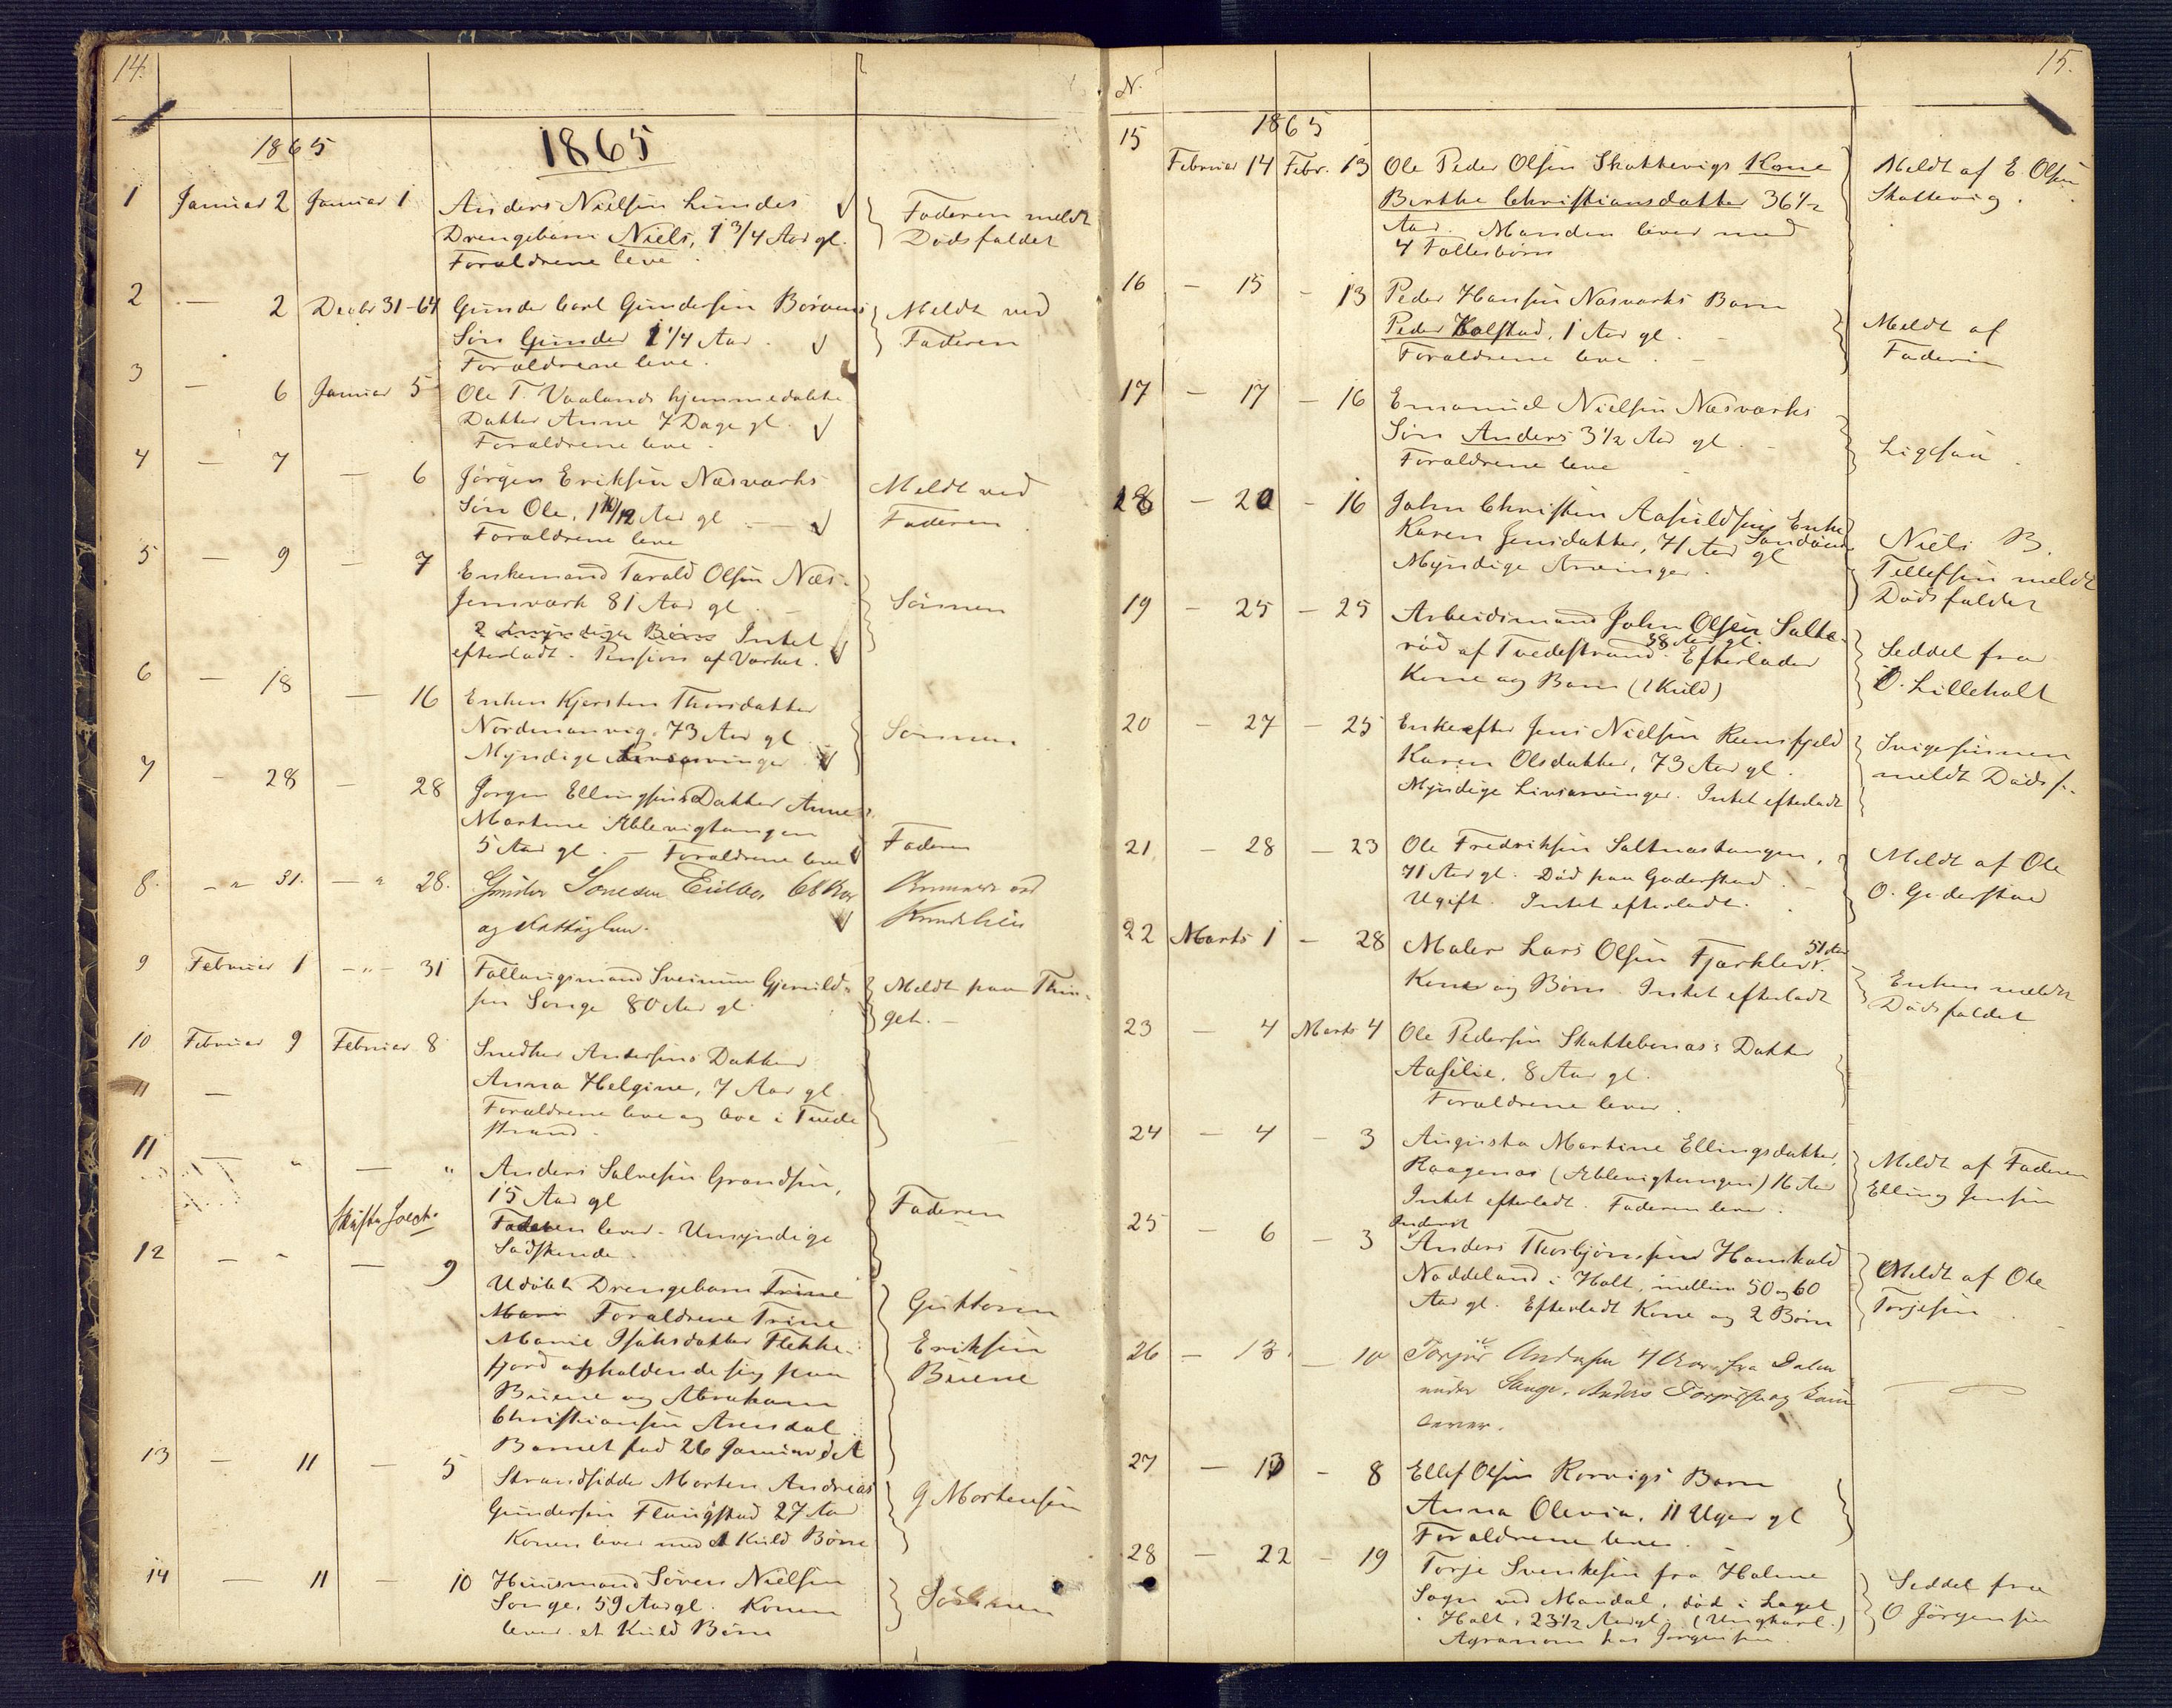 14.
1865
1865
1 Januar 2 Januar 1 Anders Nielsen Lundes Faderen meldt
Drengebarn Niels, 1 3/4 Aar gl. Dødsfaldet
Forældrene leve
2 — 2 Decbr 31-64 Gunder Carl Gundersen Meldt ved
Søn Gunder 1 1/4 Aar. Faderen
Forældrene leve.
3 — 6 Januar 5 Ole T. Vaalands hjemmedøbte
Datter Anne 7 Dage gl.
Forældrene leve.
4 — 7 — 6 Jørgen Eriksen Næsværks Meldt ved
Søn Ole, 1 10/12 Aar gl — Faderen
Forældrene leve
5 — 9 — 7 Enkemand Tarald Olsen Næs Sønnen
Jernværk 81 Aar gl. —
2 myndige Børn Intet
efterladt. Pension af Værket.
6 — 18 — 16 Enken Kjersten Thorsdatter
Nordmanvig. 73 Aar gl Sønnen
Myndige Livsarvinger
7 — 28 — 28 Jørgen Ellingsens Datter Anne
Martine Æblevigtangen
5 Aar gl. — Forældrene leve Faderen
8. — " 31. — " 28. 68 Aar
og
9 Februar 1 — " — 31 Føllaugsmand Gjeruld- Meldt paa Thin-
sen Songe 80 Aar gl. get. —
10 Februar 9 Februar 8 Snedker Andersens Datter
Anna Helgine, 7 Aar gl.
11 — Forældrene leve og boe i Tvede
strand.
11 — " — " Anders Salvesen Grandsen,
15 Aar gl Faderen
Faderen lever. Umyndige
Sødskende.
12 — " — 9 Udøbt Drengebarn Trine Guttorm
Marie Forældrene Trine Eriksen
Marie Isaksdatter Flekke- Buene
fjord opholdende sig paa
Buene og Abraham
Christiansen Arendal.
Barnet fød 26 Januar d. A
13 — 11 — 5 Strandsidder Morten Andreas G Mortensen
Gundersen Flaugstad 27 Aar
Konen lever med 1 Kuld Børn
14 — 11 — 10 Huusmand Søren Nielsen Sønnen
Songe, 59 Aar gl. Konen
lever. et Kuld Børn
15.
N.
1865
15 Februar 14 Febr. 13 Ole Peder Olsen Skattevigs Kone Meldt af E. Olsen
Berthe Christiansdatter 36 1/2 Skattevig.
Aar. Manden lever med
4 Fællesbørn
16 — 15 — 13 Peder Hansen Næsværks Barn Meldt af
Peder Kolstad, 1 Aar gl. — Faderen
Forældrene leve. —
17 — 17 — 16 Emanuel Nielsen Næsværks
Søn Anders 3 1/2 Aar gl. — Ligesaa.
Forældrene leve
18 — 20 — 16 John Christen Aasuldsens Enke
Karen Jensdatter, 71 Aar gl Niels B.
Myndige Arvinger. Tellefsen meldt
Dødsfaldet
19 — 25 — 25 Arbeidsmand John Olsen Salte-
38 Aar gl.
rød af Tvedestrand. Efterlader Seddel fra
Kone og Børn (1 Kuld) O. Lilleholt
20 — 27 — 25 Enke efter Jens Nielsen Reensfjeld Svigersønnen
Karen Olsdatter, 73 Aar gl. meldt Dødsf.
Myndige Livsarvinger. Intet efterladt
21 — 28 — 23 Ole Fredriksen Saltnæstangen, Meldt af Ole
71 Aar gl. Død paa Goderstad. — O. Goderstad
Ugift. Intet efterladt.
22 Marts 1 — 28 Maler Lars Olsen Fjærkleiv. 51 Aar
Kone og Børn. Intet efterladt Enken meldt
Dødsfaldet
23 — 4 Marts 4 Ole Pedersen Skuttebonæs's Datter
Aasilie. 8 Aar gl.
Forældrene lever.
24 — 4 — 3 Augusta Martine Ellingsdatter, Meldt af Faderen
Kaagenæs (Æblevigtangen) 16 Aar Elling Jensen
Intet efterladt. Faderen lever.
25 — 6 — 3 Anders Thorbjørnsen Meldt af Ole
Noddeland i Holt, mellem 50 og 60 Torjesen
Aar gl. Efterladt Kone og 2 Børn
26 — 13. — 10 Torjus Andersen 4 Aar, fra Dalen
under Songe. Anders Torjusen og Kone
lever.
27 — 13 — 8 Ellef Olsen Rorvigs Barn
Anna Olevia, 11 Uger gl
Forældrene lever.
28 — 22 — 19 Torje Svenkesen fra Halme Seddel fra
Sogn ved Mandal, død i Laget O Jørgensen
i Holt, 23 1/2 Aar gl. (Ungkarl.)
Agronom hos Jørgensen.